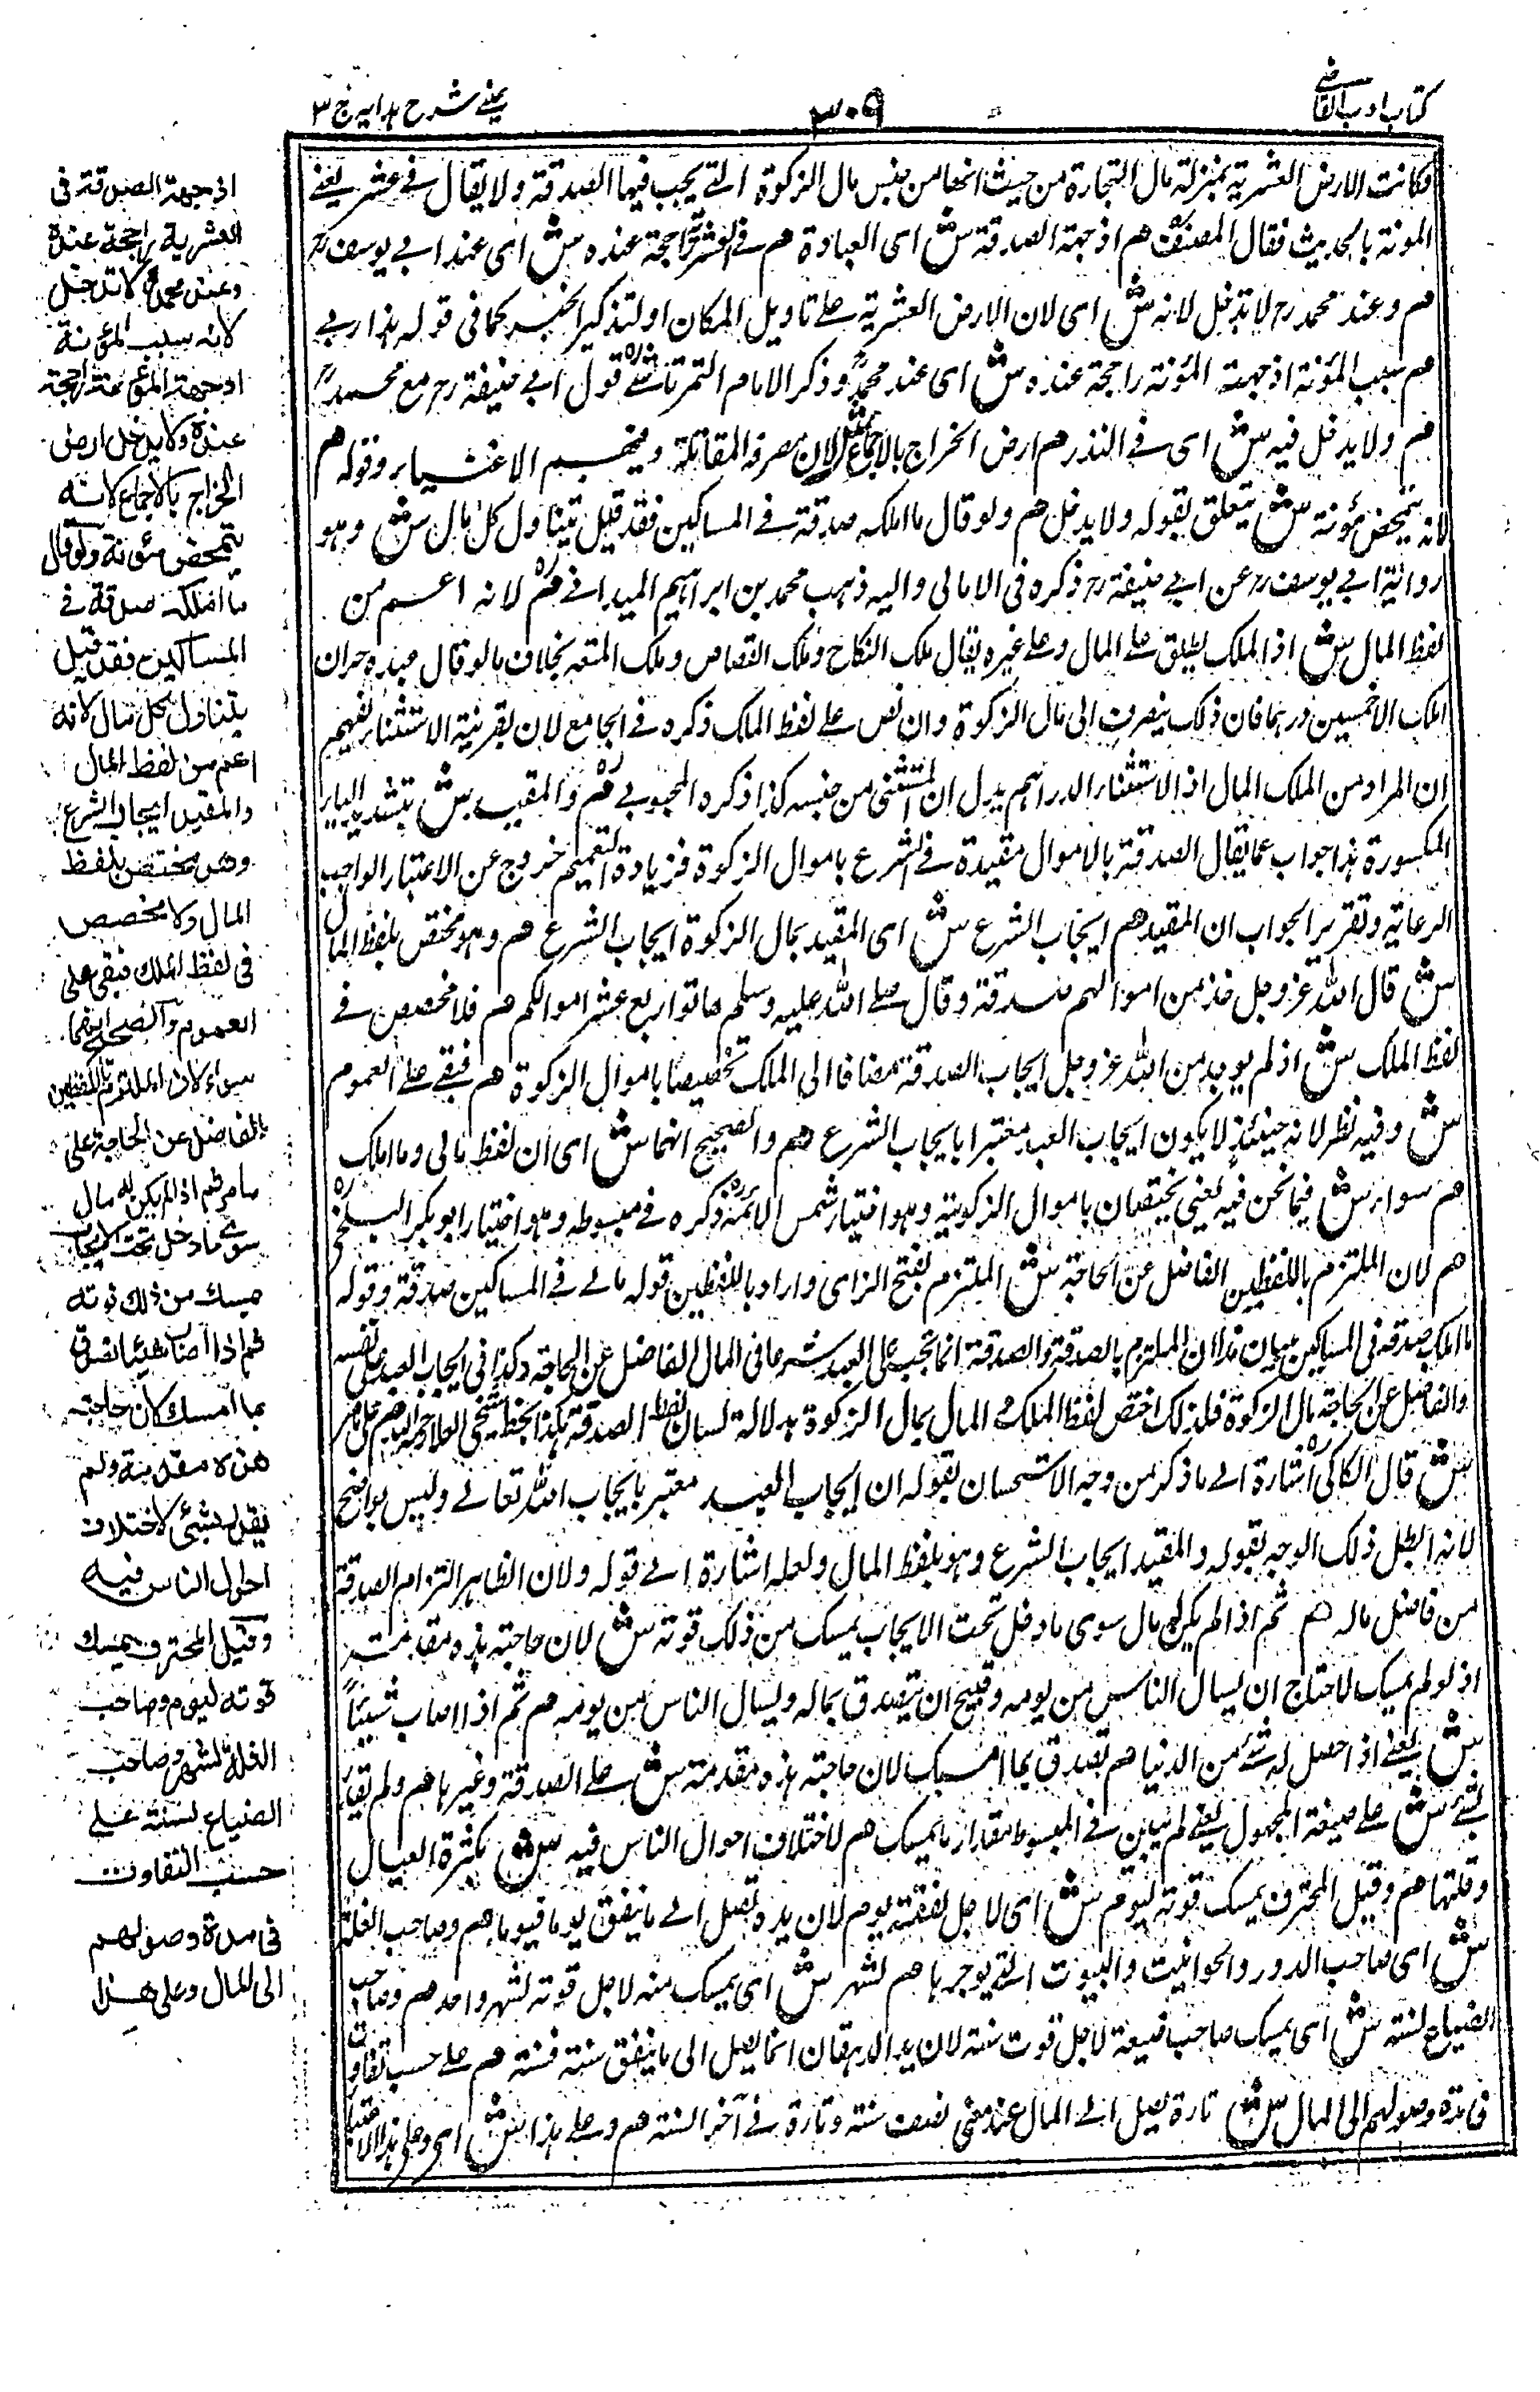 كتاب ادب القاضي
٣٠٩
عيني شرح هدايه ج ٣
فكانت الارض العشرية بمنزلة مال التجارة من حيث انها من جنس مال الزكوة التي يجب فيها الصدقة ولا يقال في عشر يعني
المونة بالحديث فقال المصنف هم اذ جهة الصدقة ش اى العبادة هم في العشرية راجحة عنده ش اى عند ابي يوسف رح
هم وعند محمد رح لا تدخل لانه ش اى لان الارض العشرية على تاويل المكان او لتذكير الخبر كما في قوله هذا ربي
هم سبب المؤنة اذ جهة المؤنة راجحة عنده ش اى عند محمد رح وذكر الامام التمرتاشي ره قول ابي حنيفة رح مع محمد رح
هم ولا يدخل فيه ش اى في النذر هم ارض الخراج بالاجماع ش لان مصرفه المقاتلة وفيهم الاغنياء وقوله هم
لانه يتمحض مؤنة ش يتعلق بقوله ولا يدخل هم ولو قال ما املكه صدقة في المساكين فقد قيل يتناول كل مال ش وهو
رواية ابي يوسف رح عن ابي حنيفة رح ذكره في الامالي واليه ذهب محمد بن ابراهيم الميداني ره هم لانه اعم من
لفظ المال ش اذ الملك يطلق على المال وعلى غيره يقال ملك النكاح وملك القصاص وملك المتعه بخلاف ما لو قال عبده حر ان
املك الا خمسين درهما فان ذلك ينصرف الى مال الزكوة وان نص على لفظ الملك ذكره في الجامع لان بقرينة الاستثناء يفهم
ان المراد من الملك المال اذ الاستثناء الدراهم يدل ان المستثنى من جنسه كذا ذكره المحبوبي ره هم والمقيد ش بتشديد الياء
المكسورة هذا جواب عما يقال الصدقة بالاموال مقيدة في الشرع باموال الزكوة فزيادة التعميم خروج عن الاعتبار الواجب
الرعاية وتقرير الجواب ان المقيد هم ايجاب الشرع ش اى المقيد بمال الزكوة ايجاب الشرع هم وهو مختص بلفظ المال
ش قال الله عز وجل خذ من اموالهم صدقة وقال صلى الله عليه وسلم هاتوا ربع عشر اموالكم هم فلا مخصص في
لفظ الملك ش اذ لم يوجد من الله عز وجل ايجاب الصدقة مضافا الى الملك تخصيصا باموال الزكوة هم فبقي على العموم
ش وفيه نظر لانه حينئذ لا يكون ايجاب العبد معتبرا بايجاب الشرع هم والصحيح انهما ش اى ان لفظ مالي وما املك
هم سواء ش فيما نحن فيه يعني يختصان باموال الزكوية وهو اختيار شمس الائمة ره ذكره في مبسوطه وهو اختيار ابو بكر البلخي ره
هم لان الملتزم باللفظين الفاضل عن الحاجة ش الملتزم بفتح الزاى واراد باللفظين قوله مالي في المساكين صدقة وقوله
ما املك صدقة في المساكين بيان هذا ان الملتزم بالصدقة والصدقة انما تجب على العبد شرعا في المال الفاضل عن الحاجة وكذا في ايجاب العبد على نفسه
والفاضل عن الحاجة مال الزكوة فلذلك اختص لفظ الملك والمال بمال الزكوة بدلالة لسان لفظ الصدقة هكذا بخط شيخي العلاء رحمه الله هم على ما مر
ش قال الكاكي ره اشارة الى ما ذكر من وجه الاستحسان بقوله ان ايجاب العبد معتبر بايجاب الله تعالى وليس بواضح
لانه ابطل ذلك الوجه بقوله والمقيد ايجاب الشرع وهو بلفظ المال ولعله اشارة الى قوله ولان الظاهر التزام الصدقة
من فاضل ماله هم ثم اذا لم يكن له مال سوى ما دخل تحت الايجاب يمسك من ذلك قوته ش لان حاجته هذه مقدمة
اذ لو لم يمسك لاحتاج ان يسال الناس من يومه وقبيح ان يتصدق بماله ويسال الناس من يومه هم ثم اذا اصاب شيئا
ش يعني اذا حصل له شئ من الدنيا هم تصدق بما امسك لان حاجته هذه مقدمة ش على الصدقة وغيرها هم ولم يقدر
بشئ ش على صيغة المجهول يعني لم يبين في المبسوط مقدار ما يمسك هم لاختلاف احوال الناس فيه ش بكثرة العيال
وقلتها هم وقيل المحترف يمسك قوته ليوم ش اى لاجل نفقته يوم لان يده تصل الى ما ينفق يوما فيوما هم وصاحب الغلة
ش اى صاحب الدور والحوانيت والبيوت التي يوجرها هم لشهر ش اى يمسك منه لاجل قوته لشهر واحد هم وصاحب
الضياع لسنته ش اى يمسك صاحب ضيعة لاجل قوت سنة لان يد الدهقان انما يصل الى ما ينفق سنة فسنة هم على حسب تفاوت
في مدة وصولهم الى المال ش تارة يصل الى المال عند مضى نصف سنة وتارة في آخر السنة هم وعلى هذا ش اى وعلى هذا الاعتبار
اذ جهة الصدقة فى
العشرية راجحة عنده
وعند محمد رح لا تدخل
لانه سبب المؤنة
اذ جهة المؤنة راجحة
عنده ولا يدخل ارض
الخراج بالاجماع لانه
يتمحض مؤنة ولو قال
ما املكه صدقة في
المساكين فقد قيل
يتناول كل مال لانه
اعم من لفظ المال
والمقيد ايجاب الشرع
وهو مختص بلفظ
المال ولا مخصص
فى لفظ الملك فبقى على
العموم والصحيح انهما
سواء لان الملتزم باللفظين
الفاضل عن الحاجة على
ما مر ثم اذا لم يكن له مال
سوى ما دخل تحت الايجاب
يمسك من ذلك قوته
ثم اذا اصاب شيئا تصدق
بما امسك لان حاجته
هذه مقدمة ولم
يقدر بشئ لاختلاف
احوال الناس فيه
وقيل المحترف يمسك
قوته ليوم وصاحب
الغلة لشهر وصاحب
الضياع لسنة على
حسب التفاوت
فى مدة وصولهم
الى المال وعلى هذا